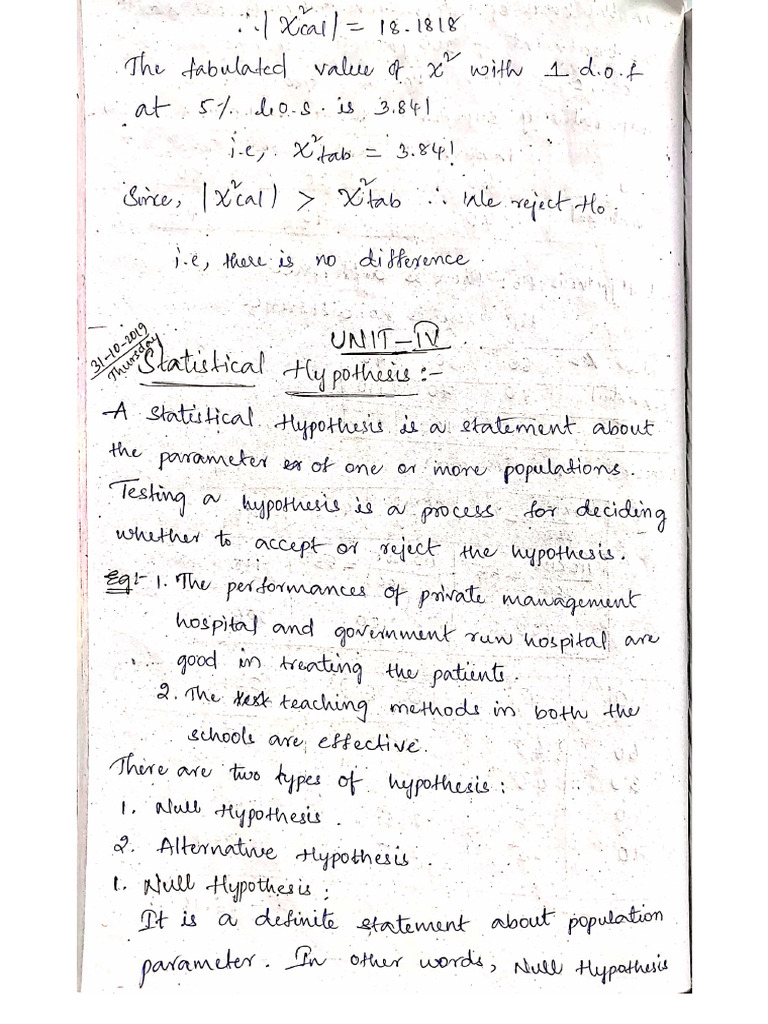 ∴ |χ²cal| = 18.1818
The tabulated value of χ² with 1 d.o.f
at 5% l.o.s. is 3.841
i.e, χ²tab = 3.841
Since, |χ²cal| > χ²tab ∴ We reject H₀.
i.e, there is no difference.
31-10-2019
Thursday
UNIT-IV
Statistical Hypothesis :-
A statistical Hypothesis is a statement about
the parameter of one or more populations.
Testing a hypothesis is a process for deciding
whether to accept or reject the hypothesis.
Eg:- 1. The performances of private management
hospital and government run hospital are
good in treating the patients.
2. The teaching methods in both the
schools are effective.
There are two types of hypothesis :
1. Null Hypothesis .
2. Alternative Hypothesis .
1. Null Hypothesis :
It is a definite statement about population
parameter. In other words, Null Hypothesis